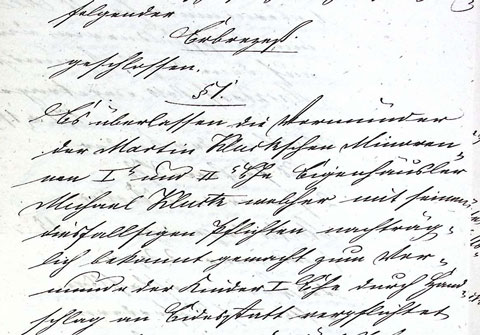 folgender
Erbrezeß.
geschlossen.
§ 1.
Es überlassen die Vormünder
der Martin Klarkschen Minoren¬
nen I r und II r Ehe Eigenhäusler
Michael Klark welcher mit seinen
diesfallsigen Pflichten nachträg¬
lich bekannt gemacht zum Vor¬
munde der Kinder I Ehe durch Hand¬
schlag an Eidesstatt verpflichtet